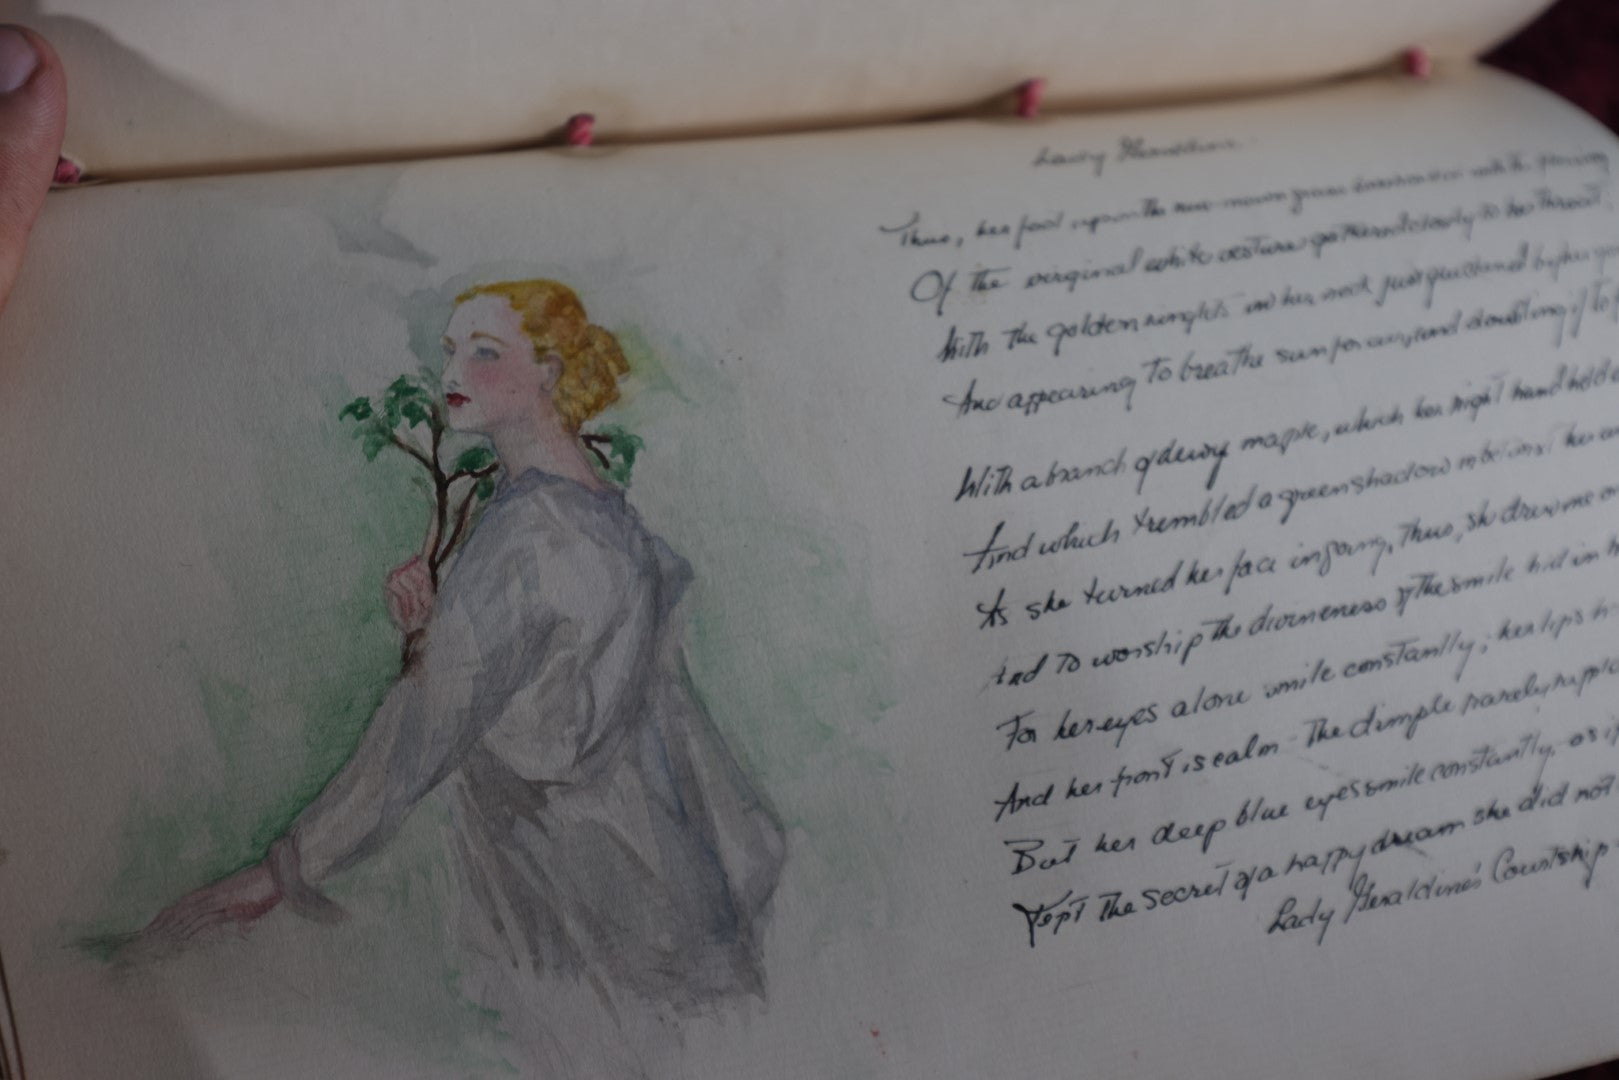 Lady Geraldine
Thus, her foot upon the new-mown grass
Of the virginal white vesture gathered closely to her throat;
With the golden ringlets in her neck just quickened by her go
And appearing to breathe the sun for air, and doubting if to
With a branch of dewy maple, which her right hand held
And which trembled a green shadow in betwixt her
As she turned her face in going, thus, she drew me on
And to worship the divineness of the smile hid in h
For her eyes alone smile constantly; her lips h
And her front is calm - The dimple rarely ripples
But her deep blue eyes smile constantly, as if
Kept the secret of a happy dream she did not
Lady Geraldine's Courtship